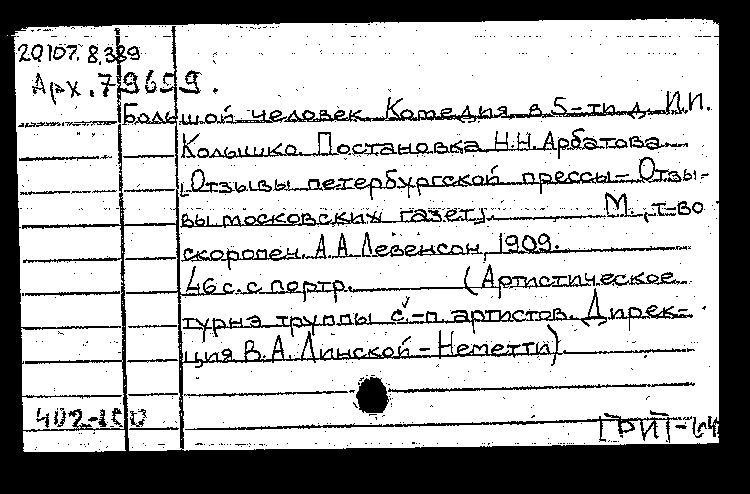 20107.8.389
Арх. 79659.
Большой человек. Комедия в 5-ти д. И.И.
Колышко. Постановка Н.Н. Арбатова.
[Отзывы петербургской прессы - Отзы-
вы московских газет]. М., т-во
скоропеч. А.А. Левенсон, 1909.
46 с. с портр. (Артистическое
турнэ труппы с.-п. артистов. Дирек-
ция В.А. Линской-Неметти)
402-100
[РИ]-64